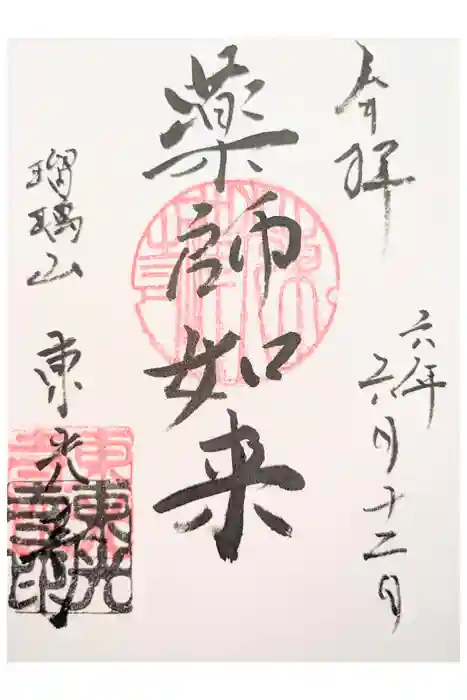 奉拝
六年六月十二日
薬師如来
瑠璃山 東光寺
東光寺印